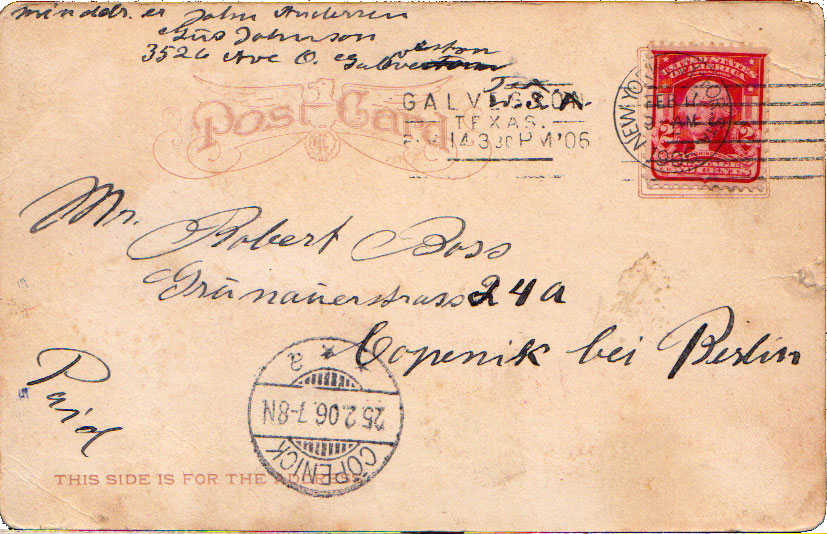 John Andersen
Gus Johnson
3526 Ave O. Galveston
Tex
U.S.A.
Post Card
GALVESTON
TEXAS.
14 330 PM '06
NEW YORK
FEB 17
AM
1906
UNITED STATES
OF AMERICA
2 2
CENTS
Mr. Robert Boss
Grünauerstrass 24a
Copenik bei Berlin
Paid
a
25.2.06.7-8N
CÖPENICK
THIS SIDE IS FOR THE ADDRESS